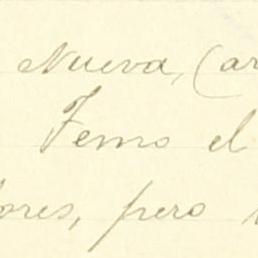 Nueva, (ar
Temo el
ores, pero